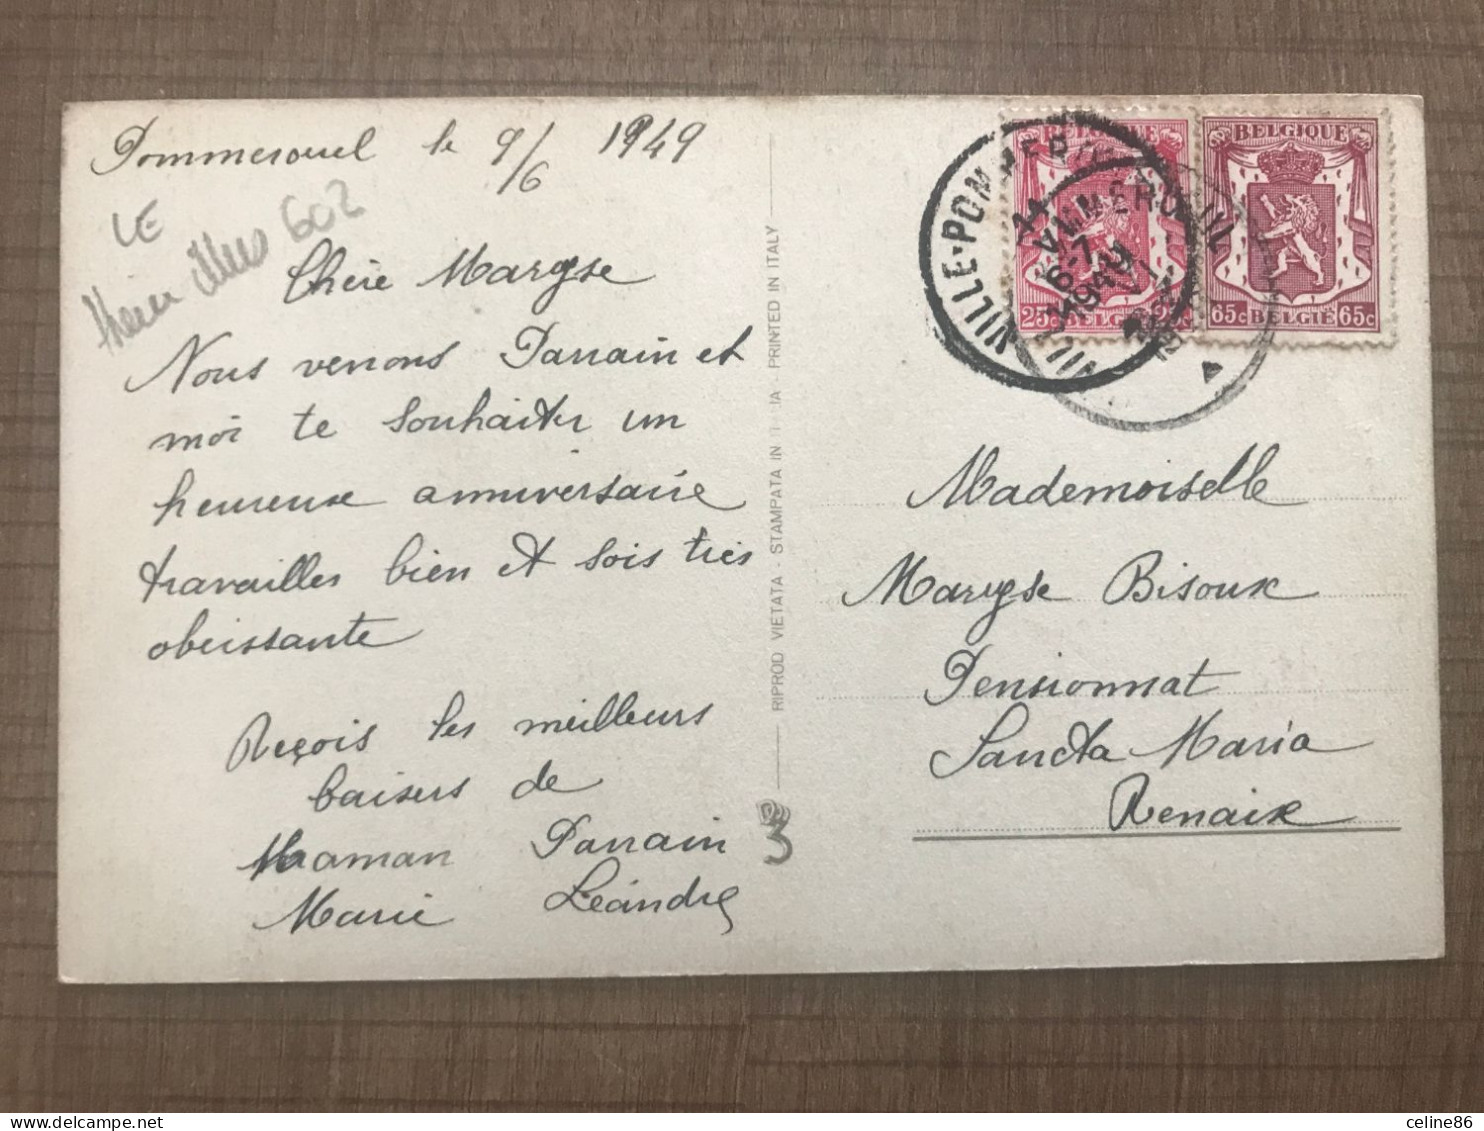 Pommeroeul le 9/6 1949
LE
602
Chère Maryse
Nous venons Parrain et
moi te souhaiter un
heureuse anniversaire
travailles bien et sois très
obeissante
Reçois les meilleurs
baisers de
Maman Parrain
Marie Léandre
RIPROD VIETATA - STAMPATA IN ITALIA - PRINTED IN ITALY
3
BELGIQUE
25c BELGIE 25c
BELGIQUE
65c BELGIE 65c
VILLE-POMMEROEUL
1949
Mademoiselle
Maryse Bisoux
Pensionnat
Sancta Maria
Renaix
delcampe.net
celine86